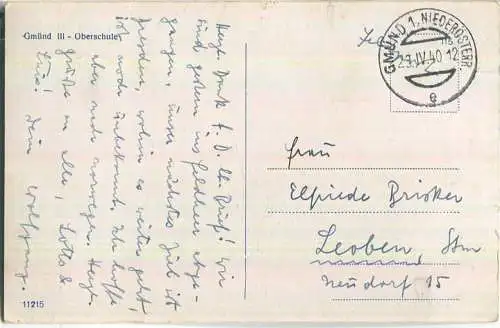 Gmünd III - Oberschule
Herzl. Dank f. D. lb. Brief! Wir
sind gestern ins Feldlager abge-
gangen, unser nächstes Ziel ist
Dresden, wohin es weiter geht,
ist noch unbekannt. Ich hoffe
aber nach Norwegen. Herzl.
Grüße an alle, Lotte &
Dein Wolfgang.
11215
GMÜND 1, NIEDERÖSTERR.
23.IV.40 12
e
Frau
Elfriede Brisker
Leoben Stm
Neudorf 15